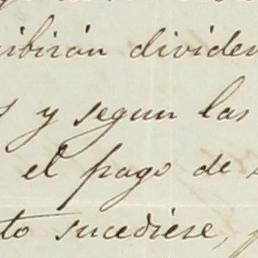 cibirán dividen
y segun las
el pago de
to sucediese,